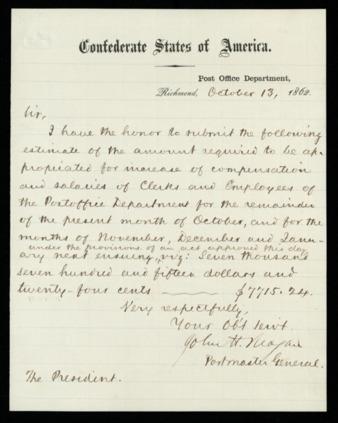 Confederate States of America.
Post Office Department,
Richmond, October 13, 1862.
Sir,
I have the honor to submit the following
estimate of the amount required to be ap-
propriated for increase of compensation
and salaries of Clerks and Employees of
the Postoffice Department for the remainder
of the present month of October, and for the
months of November, December and Janu-
under the provisions of an act approved this day
ary next ensuing, viz: Seven thousand
seven hundred and fifteen dollars and
twenty-four cents $7715.24.
Very respectfully,
Your Obt servt.
John H. Reagan
Postmaster General.
The President.